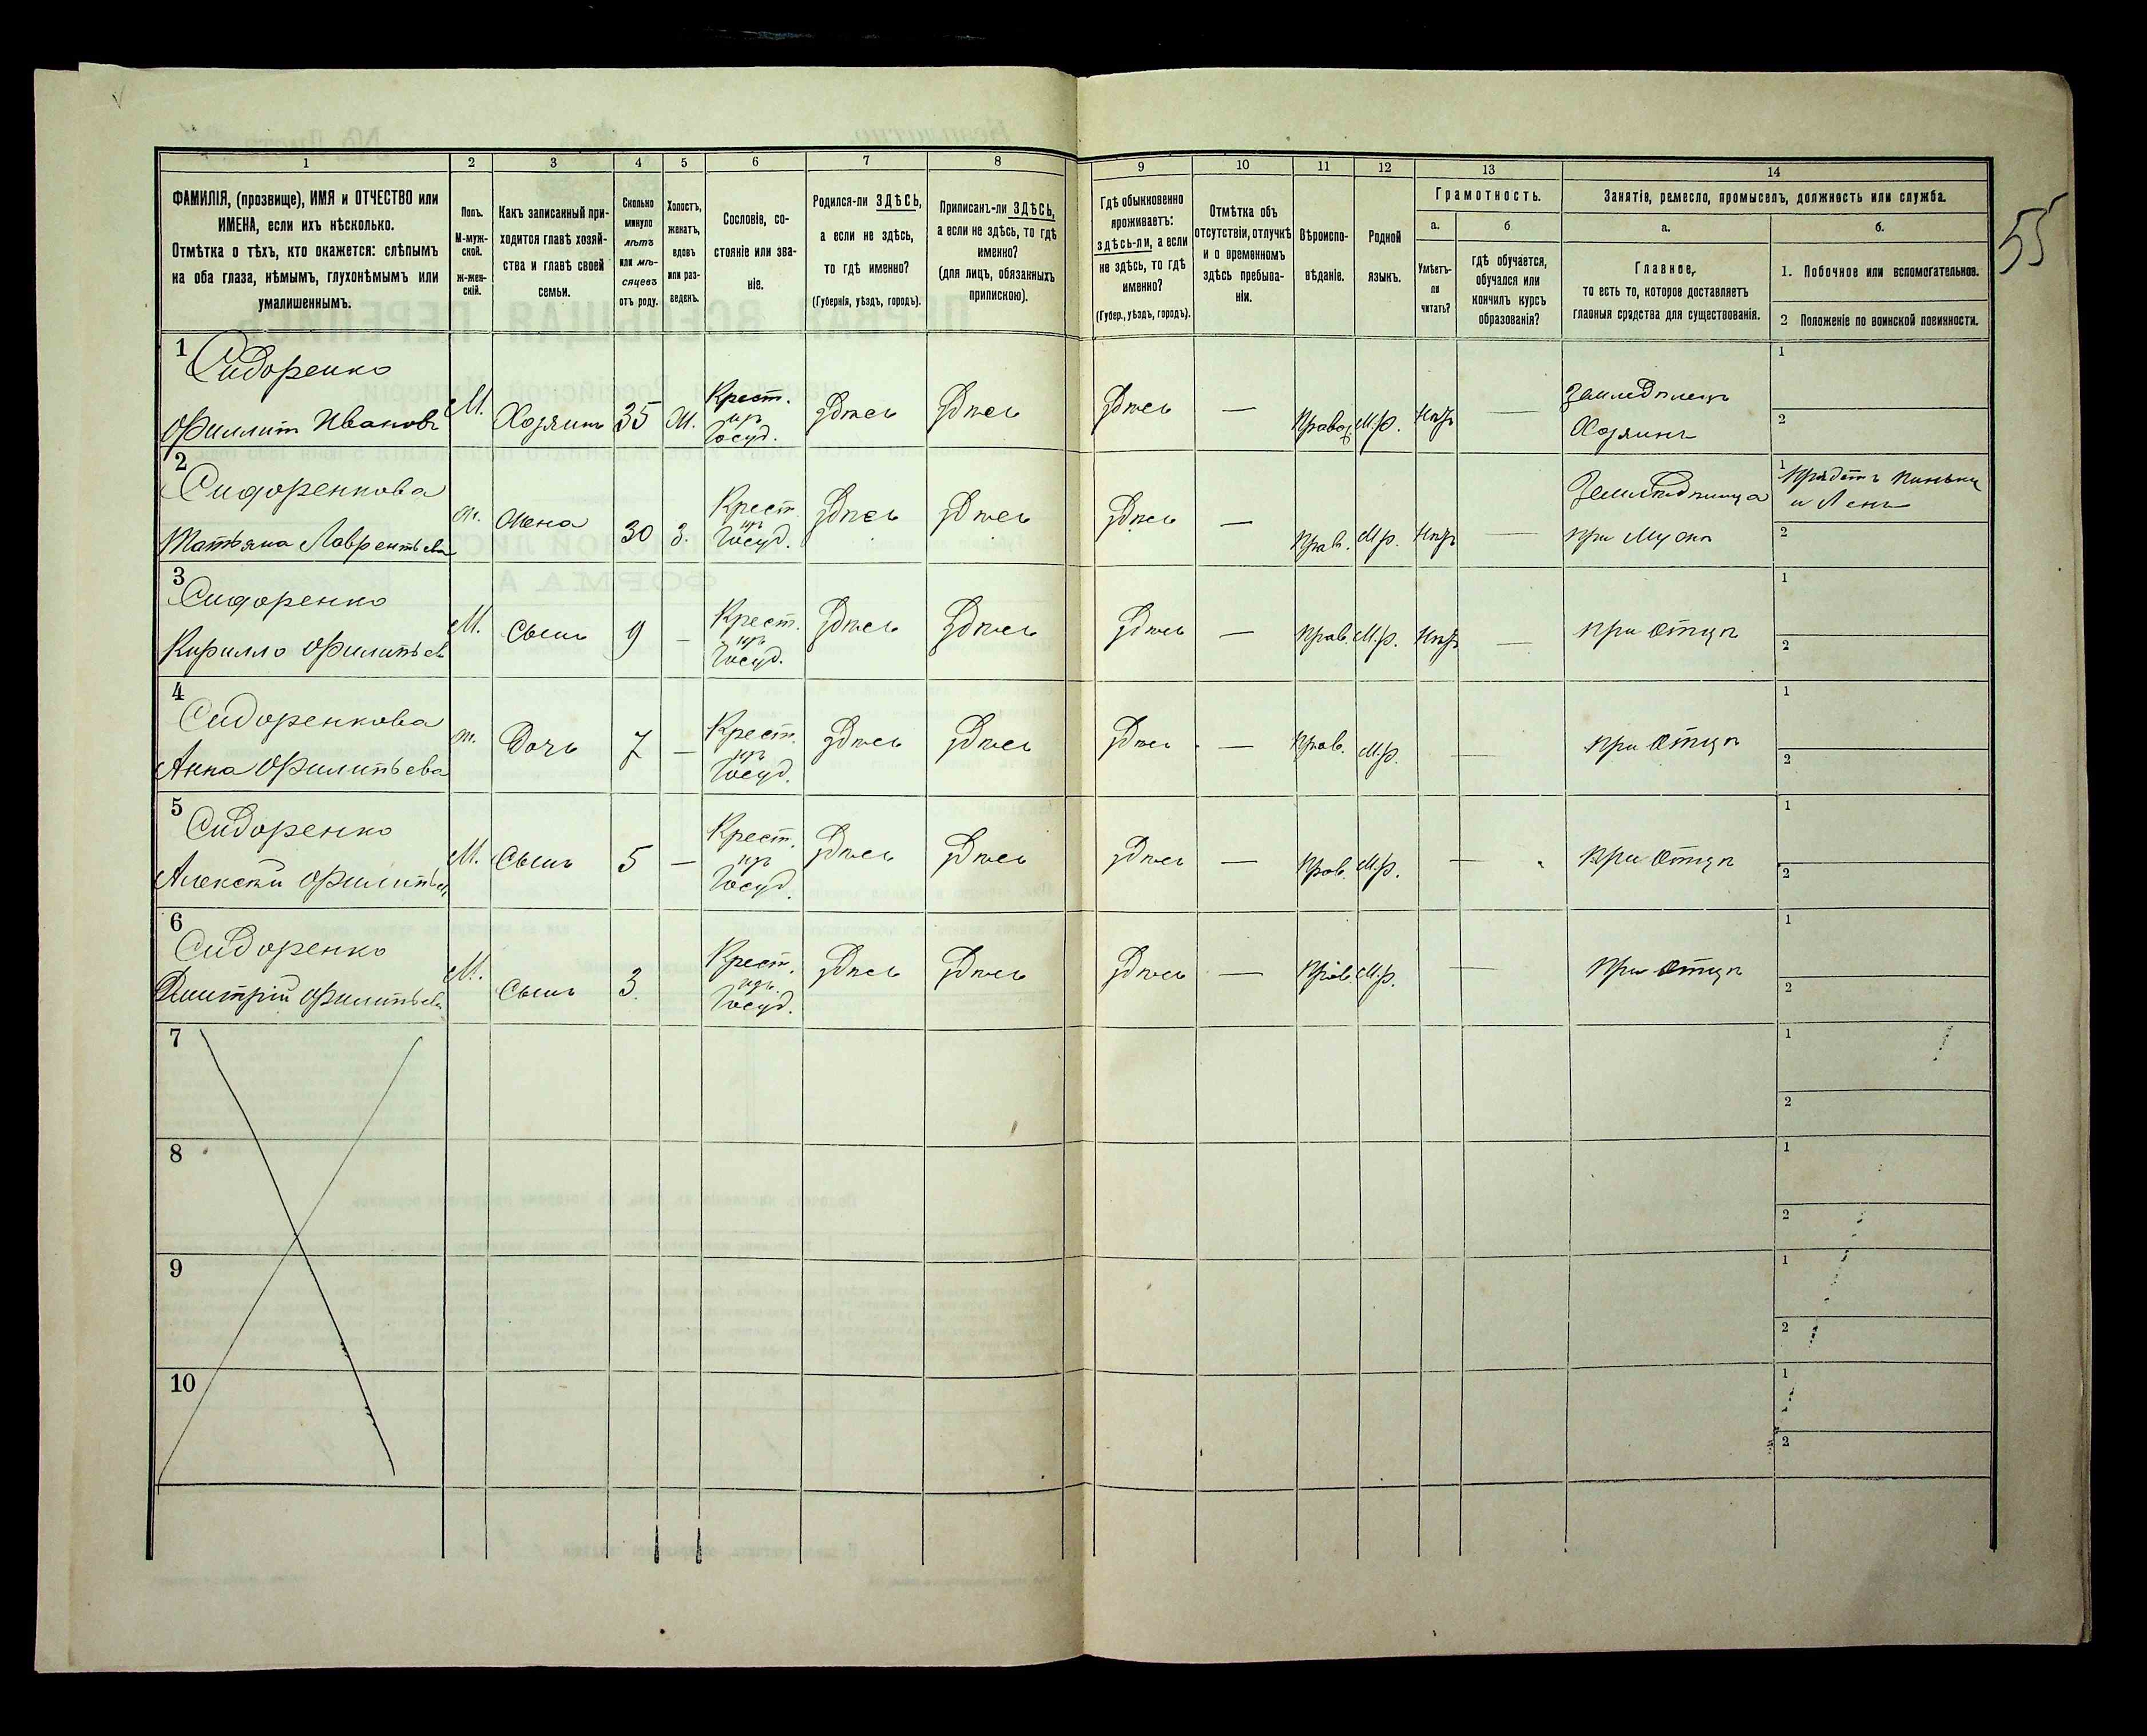 55
1 2 3 4 5 6 7 8 9 10 11 12 13 14
ФАМИЛІЯ, (прозвище), ИМЯ и ОТЧЕСТВО или
ИМЕНА, если ихъ нѣсколько.
Отмѣтка о тѣхъ, кто окажется: слѣпымъ
на оба глаза, нѣмымъ, глухонѣмымъ или
умалишеннымъ.
Полъ.
М-муж-
ской.
Ж-жен-
скій.
Какъ записанный при-
ходится главѣ хозяй-
ства и главѣ своей
семьи.
Сколько
минуло
лѣтъ
или мѣ-
сяцевъ
отъ роду.
Холостъ,
женатъ,
вдовъ
или раз-
веденъ.
Сословіе, со-
стояніе или зва-
ніе.
Родился-ли ЗДѢСЬ,
а если не здѣсь,
то гдѣ именно?
(Губернія, уѣздъ, городъ).
Приписанъ-ли ЗДѢСЬ,
а если не здѣсь, то гдѣ
именно?
(для лицъ, обязанныхъ
припискою).
Гдѣ обыкновенно
проживаетъ:
здѣсь-ли, а если
не здѣсь, то гдѣ
именно?
(Губер., уѣздъ, городъ).
Отмѣтка объ
отсутствіи, отлучкѣ
и о временномъ
здѣсь пребыва-
ніи.
Вѣроиспо-
вѣданіе.
Родной
языкъ.
Грамотность.
а.
Умѣетъ-
ли
читать?
б
гдѣ обучается,
обучался или
кончилъ курсъ
образованія?
Занятіе, ремесло, промыселъ, должность или служба.
а.
Главное,
то есть то, которое доставляетъ
главныя средства для существованія.
б.
1. Побочное или вспомогательное.
2 Положеніе по воинской повинности.
1 Сидоренко
Филипп Ивановъ
М. Хозяинъ 35 Ж. Крест.
изъ
Госуд.
Здѣсь Здѣсь Здѣсь — Правос. М.р. Нѣтъ —
Земледѣлецъ
Хозяинъ
1
2
2 Сидоренкова
Татьяна Лаврентьева
Ж. Жена 30 З. Крест.
изъ
Госуд.
Здѣсь Здѣсь Здѣсь — Прав. М.р. Нѣтъ —
Земледѣлица
при Мужѣ
1 Прядетъ Пеньку
и Ленъ
2
3 Сидоренко
Кирилло Филипьевъ
М. Сынъ 9 — Крест.
изъ
Госуд.
Здѣсь Здѣсь Здѣсь — Прав. М.р. Нѣтъ — при Отцѣ
1
2
4 Сидоренкова
Анна Филипьева
Ж. Дочь 7 — Крест.
изъ
Госуд.
Здѣсь Здѣсь Здѣсь — Прав. М.р. — при Отцѣ
1
2
5 Сидоренко
Алексѣй Филипьевъ
М. Сынъ 5 — Крест.
изъ
Госуд.
Здѣсь Здѣсь Здѣсь — Прав. М.р. — при Отцѣ
1
2
6 Сидоренко
Дмитрій Филипьевъ
М. Сынъ 3 Крест.
изъ
Госуд.
Здѣсь Здѣсь Здѣсь — Прав. М.р. — при Отцѣ
1
2
7
1
2
8
1
2
9
1
2
10
1
2